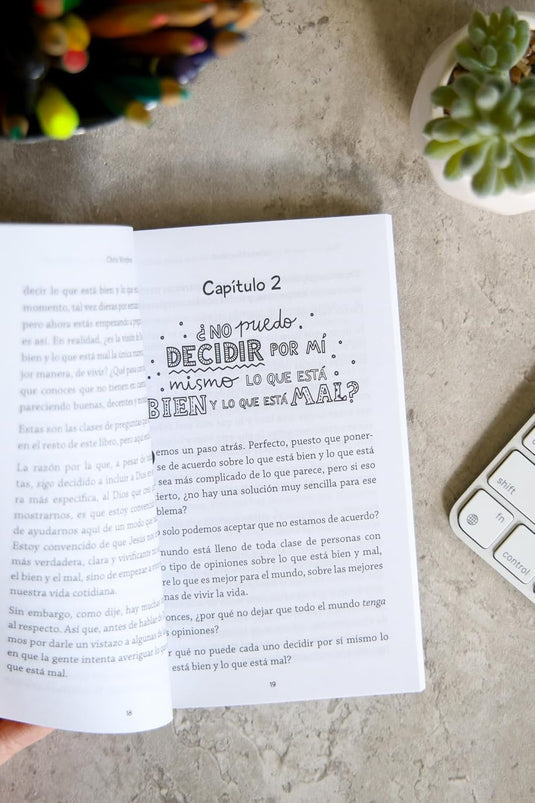 Chris Morphew
decir lo que está bien y lo
momento, tal vez dieras por senta
pero ahora estás empezando a
es así. En realidad, ¿es la
bien y lo que está mal la única
jor manera, de vivir? ¿Qué pasa
que conoces que no tienen en
pareciendo buenas, decentes y
Estas son las clases de preguntas
en el resto de este libro, pero aquí
La razón por la que, a pesar de
tas, sigo decidido a incluir a Dios
ra más específica, al Dios que
mostrarnos, es que estoy conven
de ayudarnos aquí de un modo que
Estoy convencido de que Jesús nos
más verdadera, clara y vivificante
el bien y el mal, sino de empezar a
nuestra vida cotidiana.
Sin embargo, como dije, hay mucha
al respecto. Así que, antes de hablar de
mos por darle un vistazo a algunas de
en que la gente intenta averiguar lo
que está mal.
18
Capítulo 2
¿NO puedo
DECIDIR POR MÍ
mismo LO QUE ESTÁ
BIEN Y LO QUE ESTÁ MAL?
emos un paso atrás. Perfecto, puesto que poner-
se de acuerdo sobre lo que está bien y lo que está
sea más complicado de lo que parece, pero si eso
ierto, ¿no hay una solución muy sencilla para ese
blema?
solo podemos aceptar que no estamos de acuerdo?
mundo está lleno de toda clase de personas con
o tipo de opiniones sobre lo que está bien y mal,
re lo que es mejor para el mundo, sobre las mejores
nas de vivir la vida.
onces, ¿por qué no dejar que todo el mundo tenga
s opiniones?
r qué no puede cada uno decidir por sí mismo lo
está bien y lo que está mal?
19
shift
fn
control